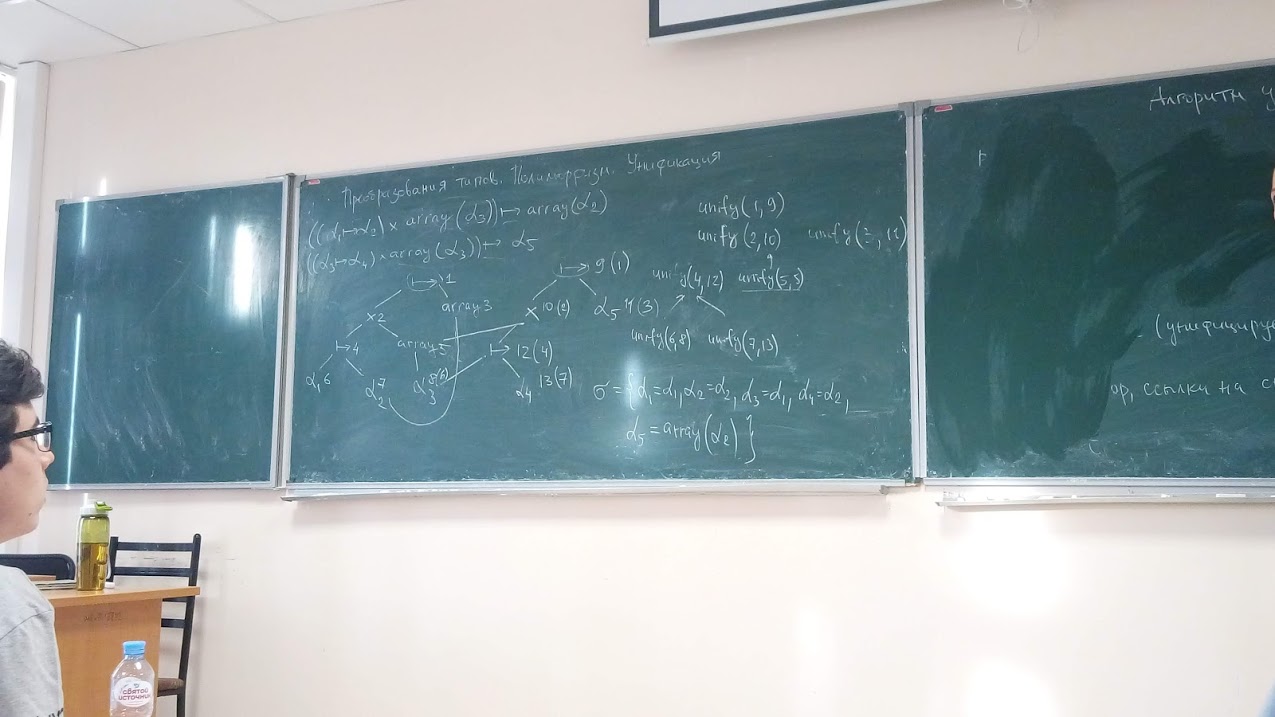 Преобразования типов. Полиморфизм. Унификация
((α₁↦α₂) × array(α₃)) ↦ array(α₂)
((α₃↦α₄) × array(α₃)) ↦ α₅
↦ 1
array 3
× 2
↦ 4
array 5
α₁ 6
α₂ 7
α₃ 8(6)
↦ 9(1)
× 10(2)
α₅ 11(3)
↦ 12(4)
α₄ 13(7)
unify(1,9)
unify(2,10) unify(3,11)
unify(4,12) unify(5,5)
unify(6,8) unify(7,13)
σ = {α₁=α₁, α₂=α₂, α₃=α₁, α₄=α₂,
α₅ = array(α₂)}
Алгоритм у
(унифициру
ор, ссылки на с
святой
источник